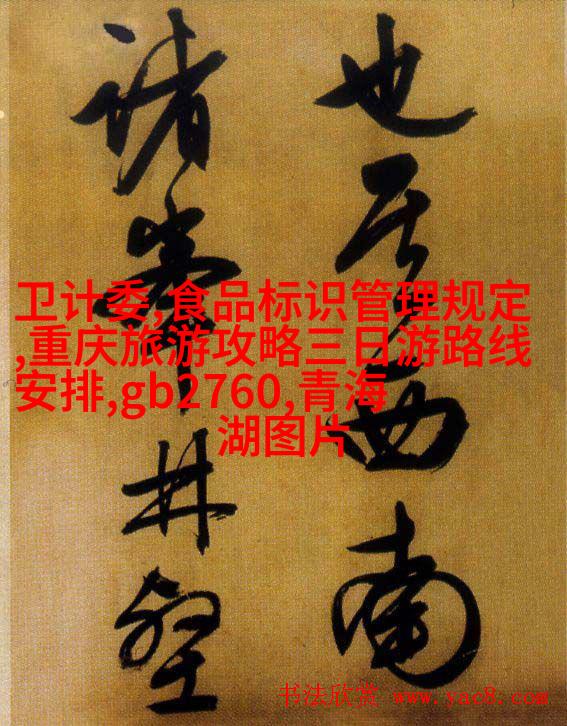 也其西南
諸峯林壑
卫计委,食品标识管理规定
,重庆旅游攻略三日游路线
安排,gb2760,青海
湖图片
书法欣赏 www.yac8.com